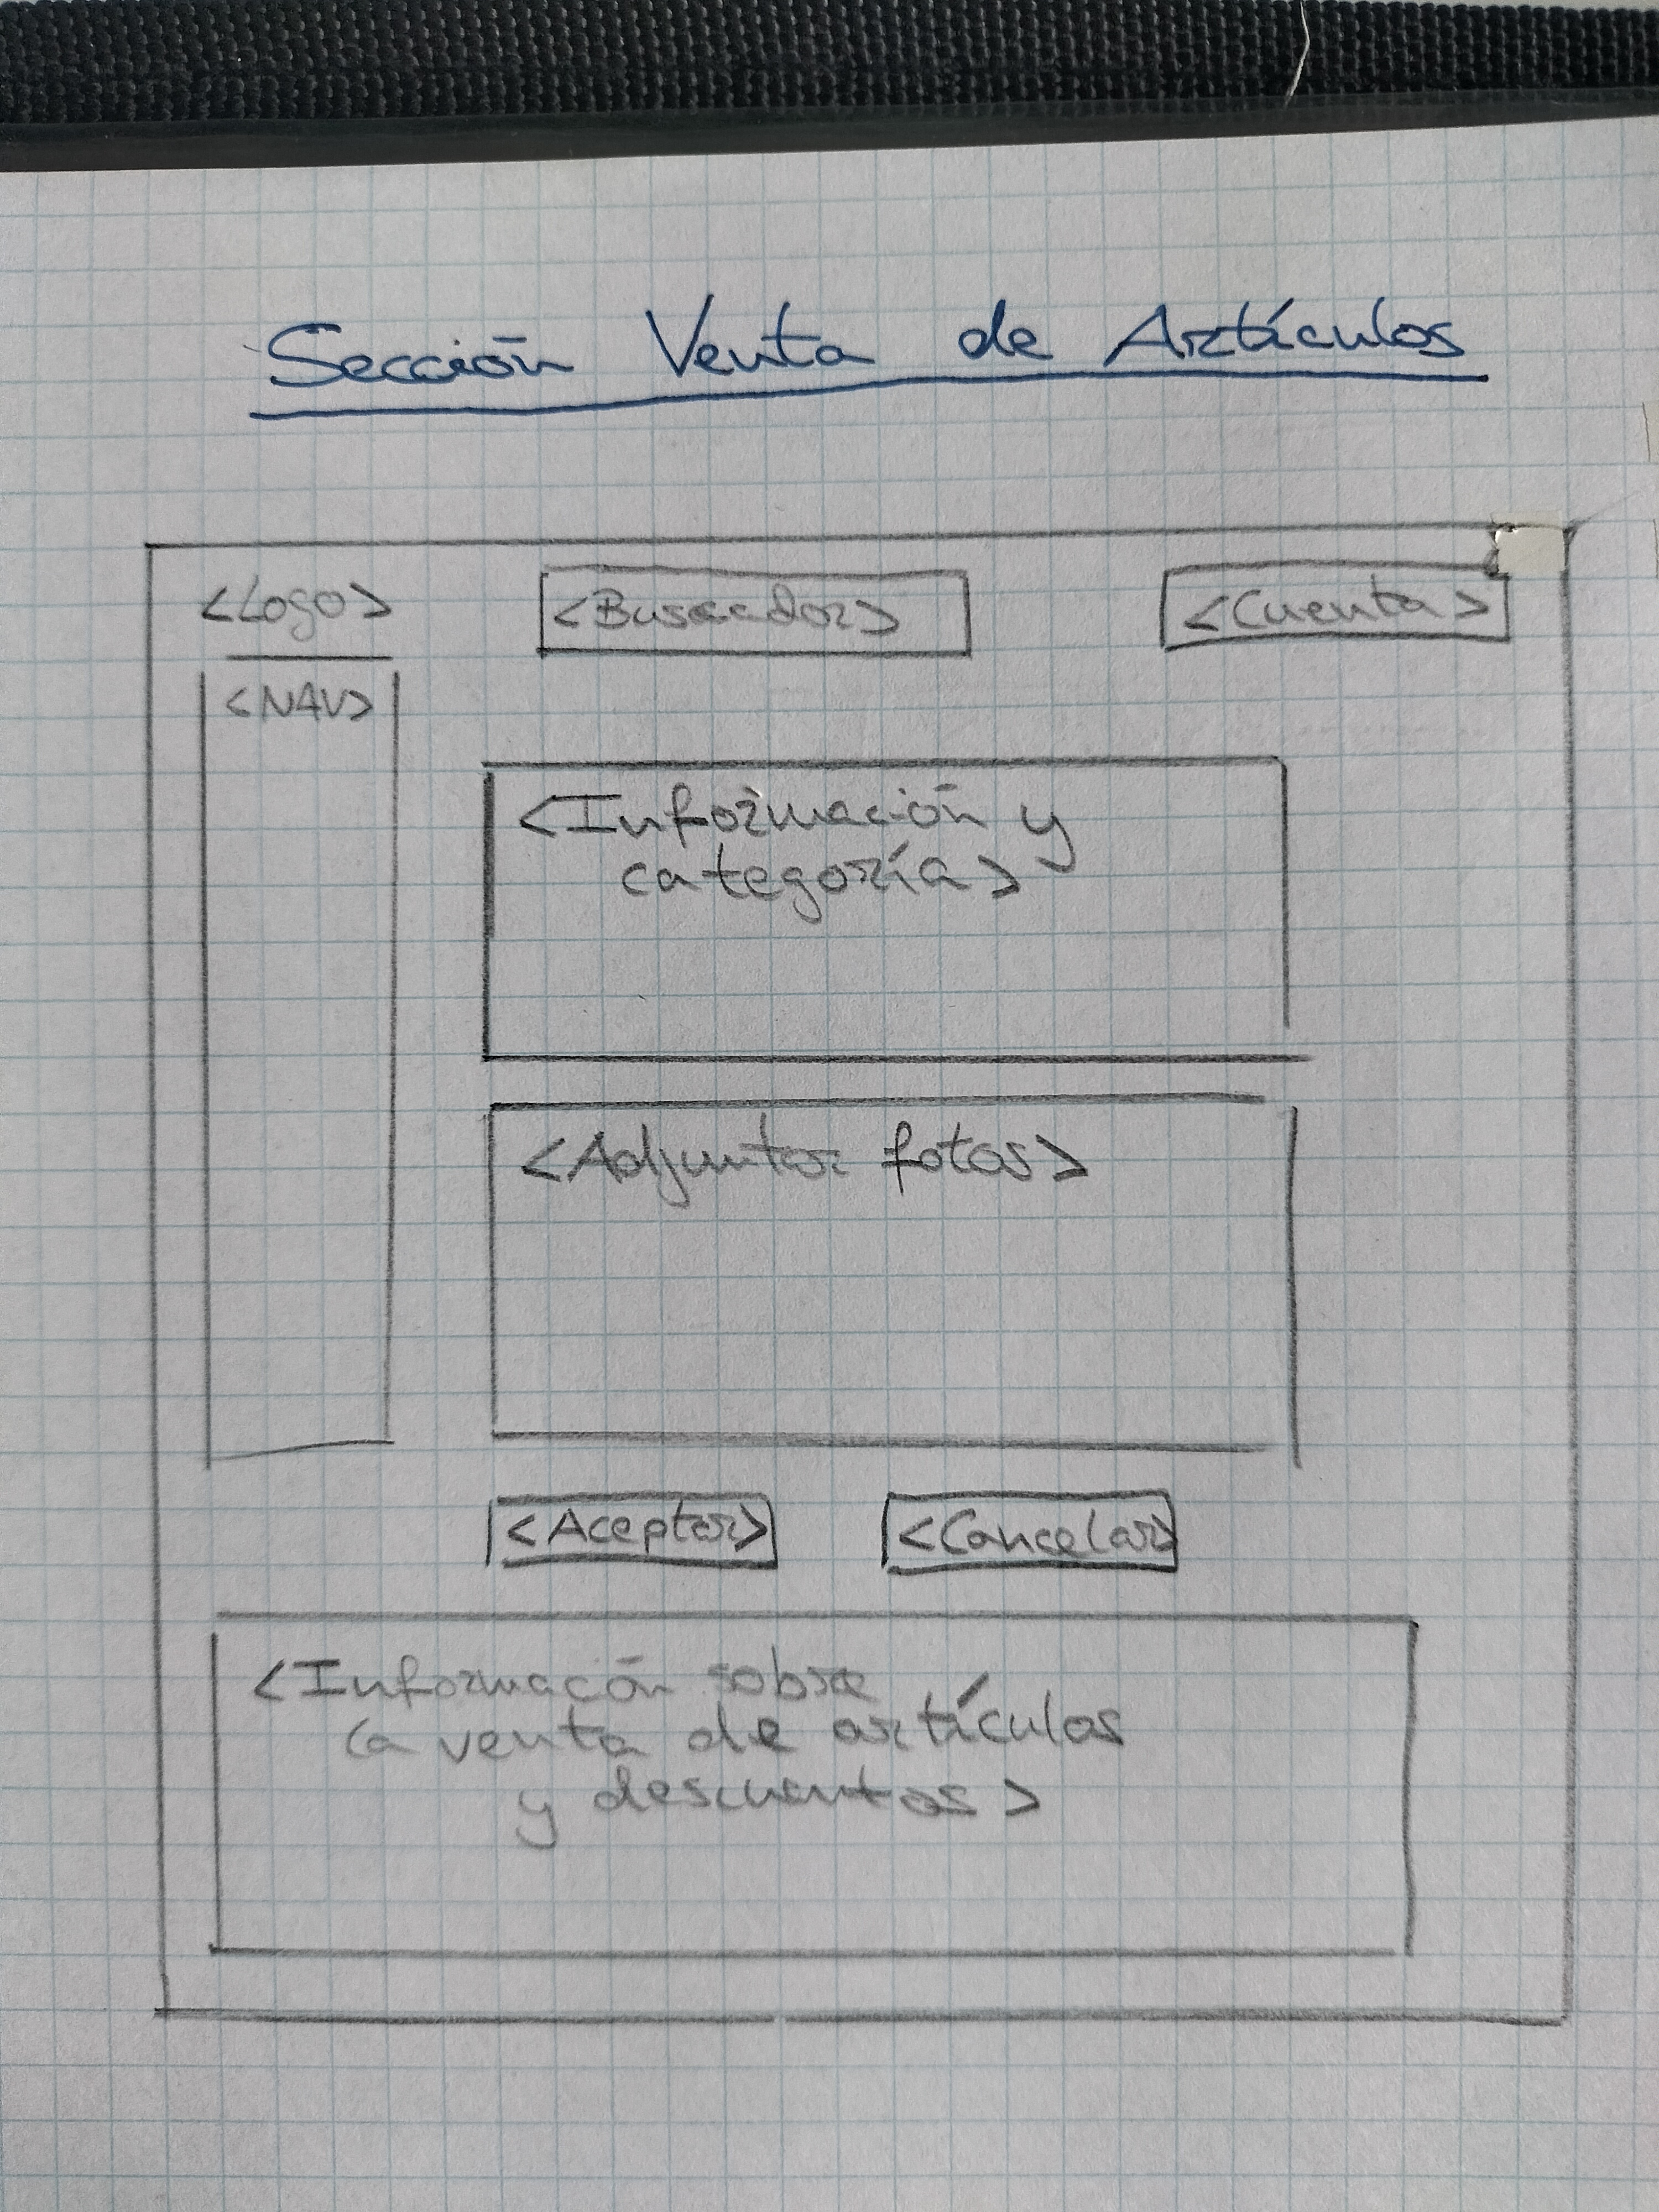 Sección Venta de Artículos
<Logo> <Buscador> <Cuenta>
<NAV>
<Información y
categoría>
<Adjuntar fotos>
<Aceptar> <Cancelar>
<Información sobre
la venta de artículos
y descuentos>